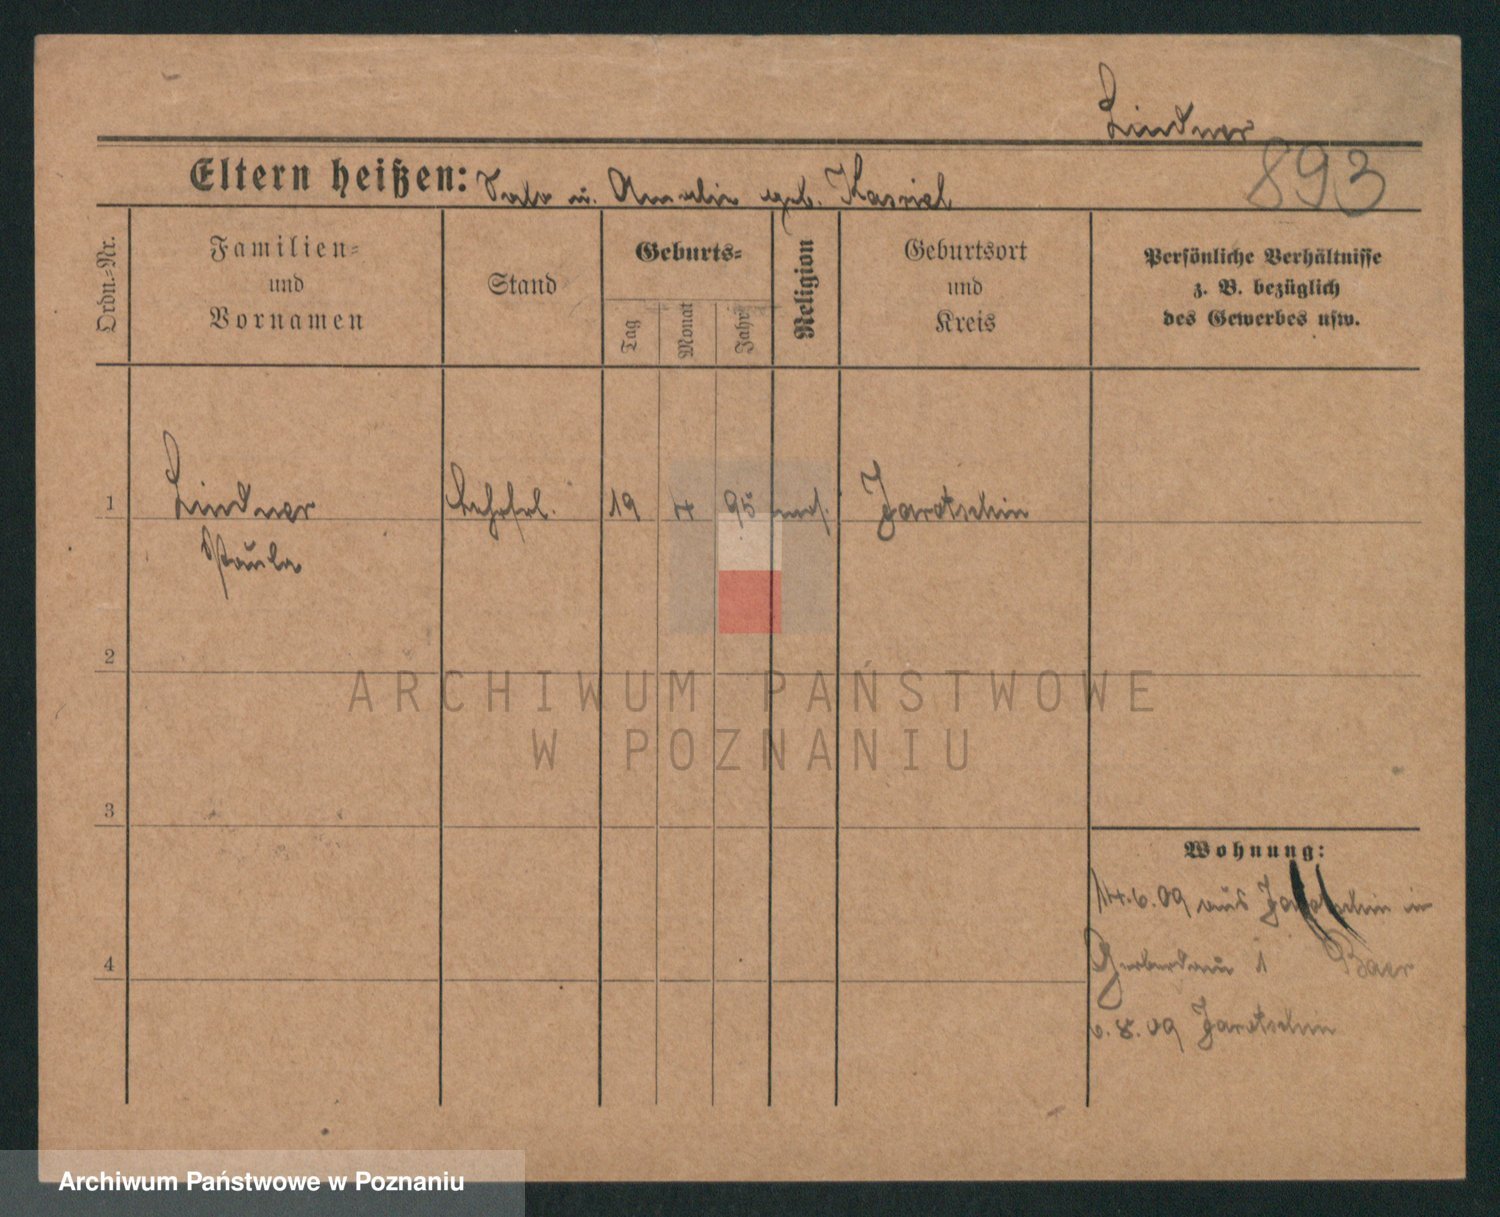 Lindner
893
Eltern heißen: Salo u. Amalie geb. Kasriel
Ordn.=Nr.
Familien=
und
Vornamen
Stand
Geburts=
Tag
Monat
Jahr
Religion
Geburtsort
und
Kreis
Persönliche Verhältnisse
z. B. bezüglich
des Gewerbes usw.
1
Lindner
Paula
Lehrfrl.
19
4
95
mos.
Jarotschin
2
ARCHIWUM PAŃSTWOWE
W POZNANIU
3
Wohnung:
14.6.09 aus Jarotschin in
4
Gerberdamm 1 Baer
6.8.09 Jarotschin
Archiwum Państwowe w Poznaniu